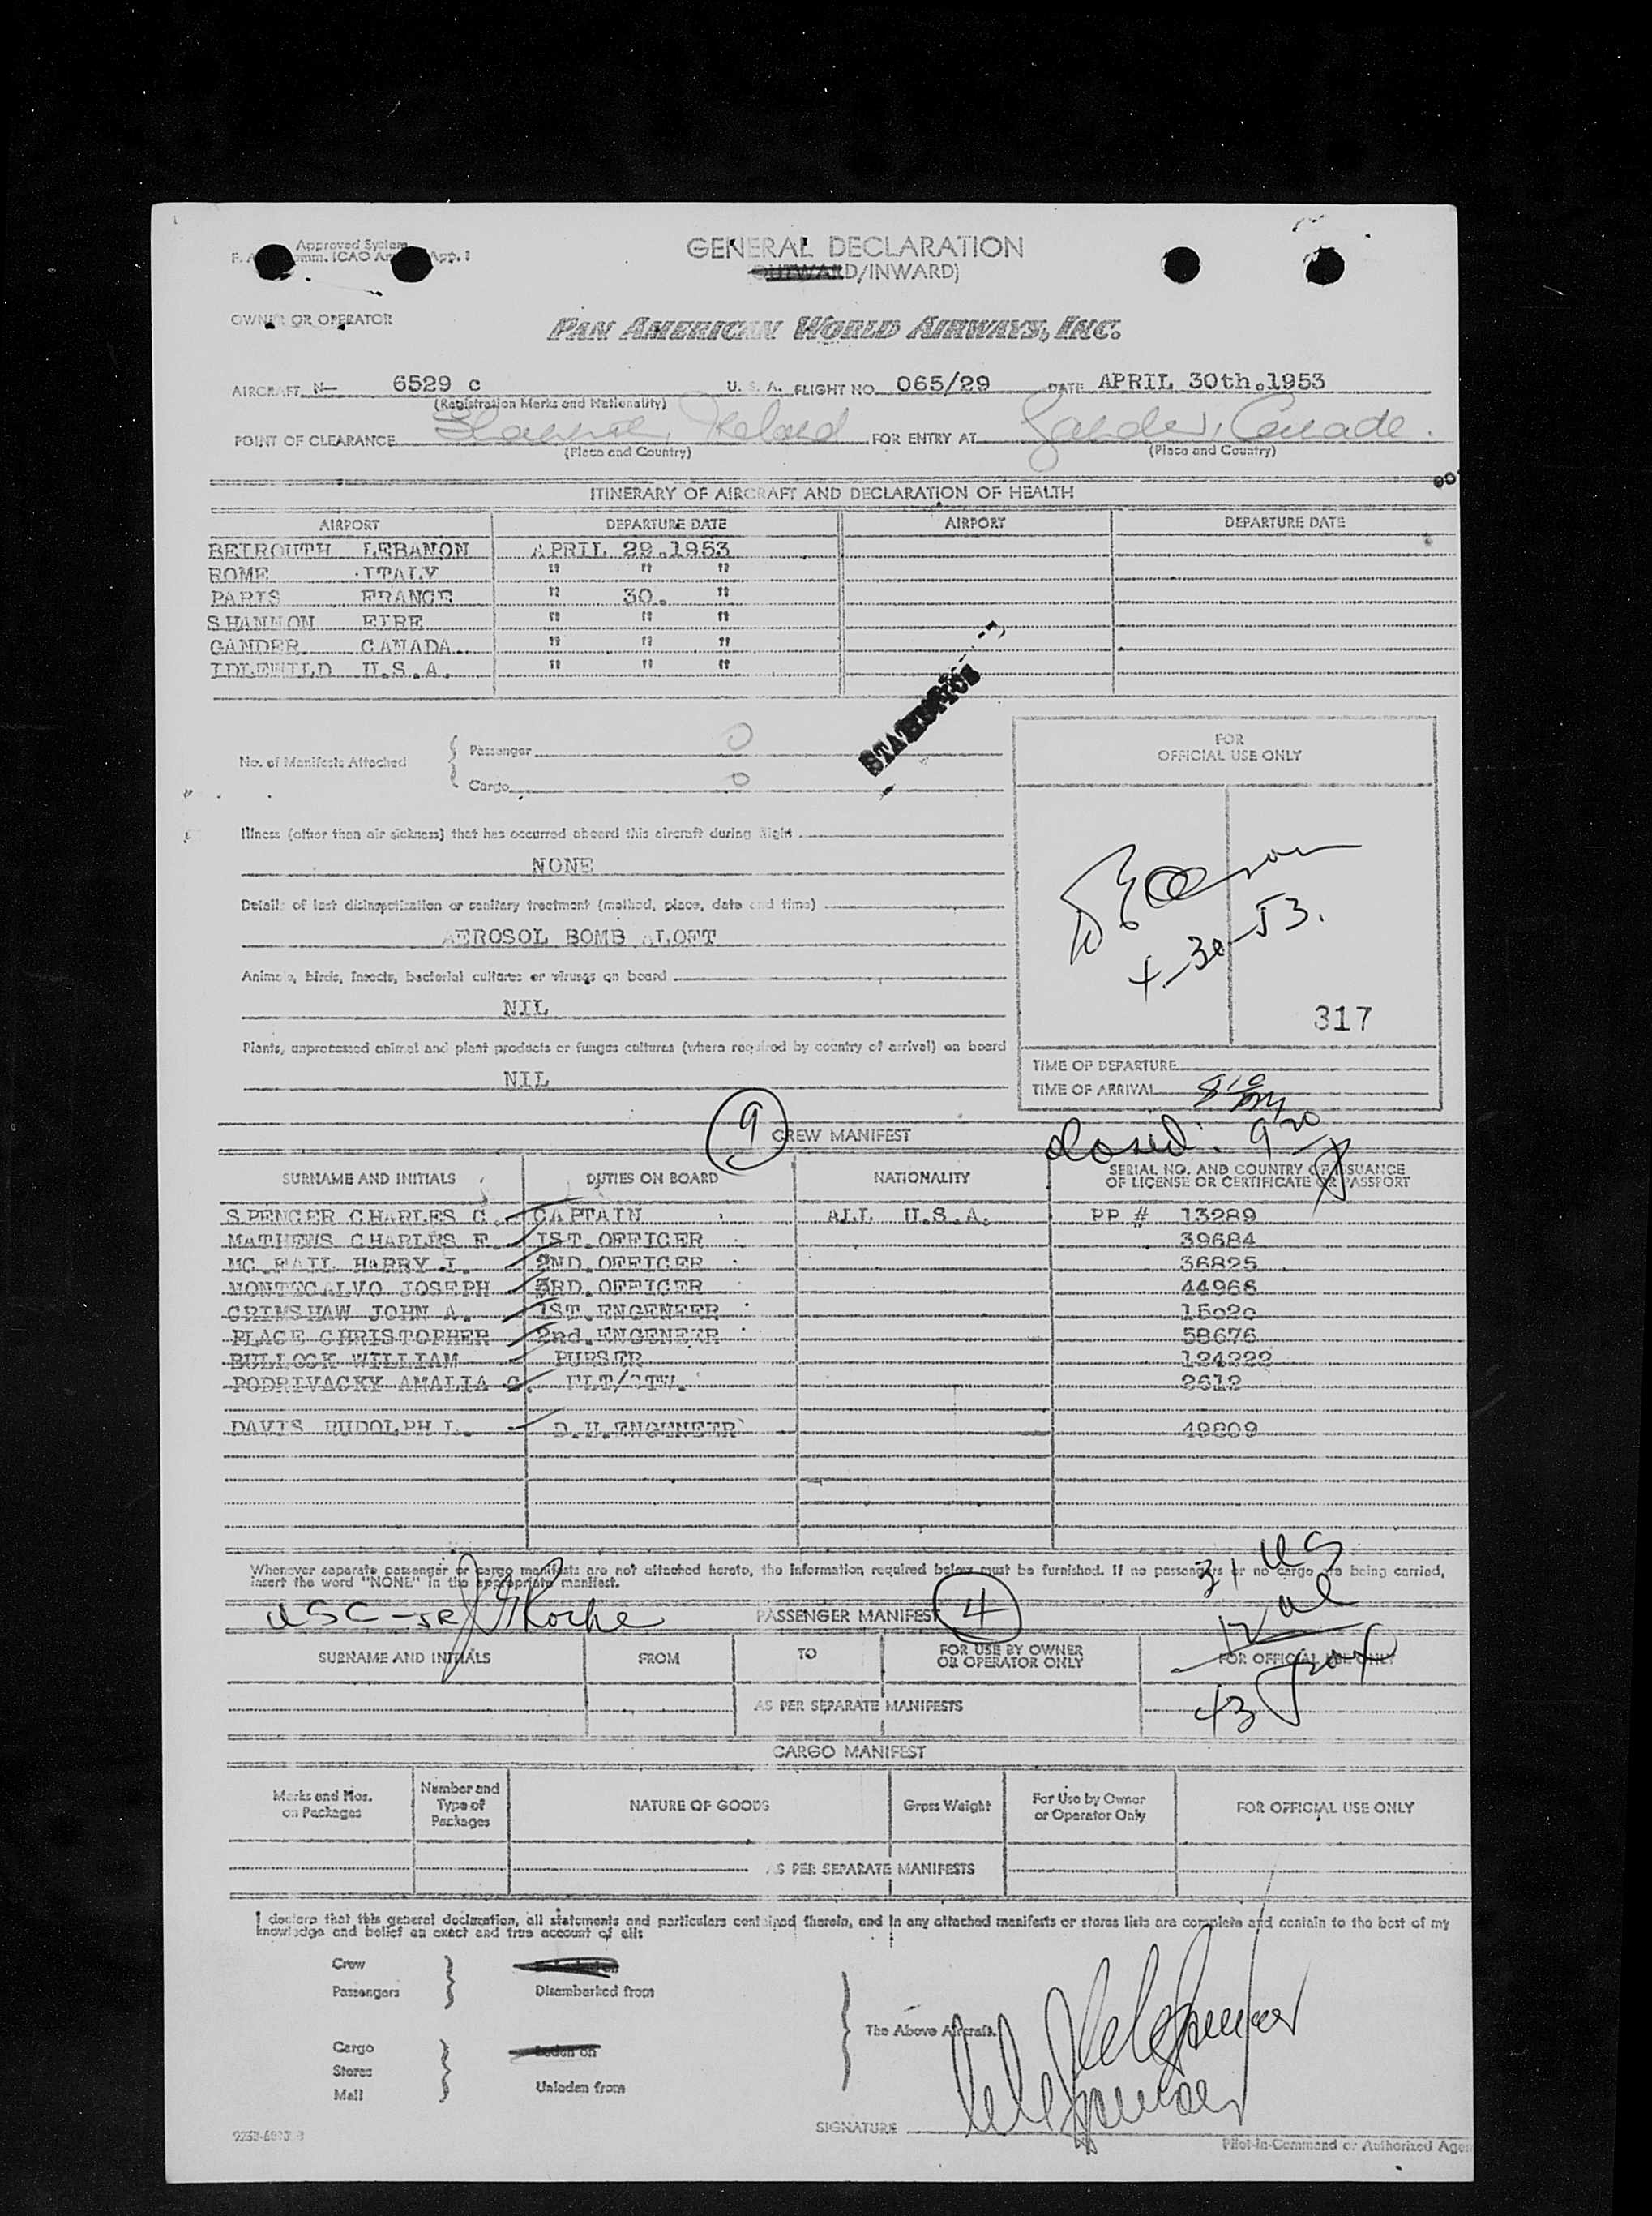 Approved System
GENERAL DECLARATION
(OUTWARD/INWARD)
OWNER OR OPERATOR
PAN AMERICAN WORLD AIRWAYS, INC.
AIRCRAFT N— 6529 c U. S. A. FLIGHT NO. 065/29 DATE APRIL 30th.1953
(Registration Marks and Nationality)
POINT OF CLEARANCE Shannon, Ireland FOR ENTRY AT Gander, Canada.
(Place and Country) (Place and Country)
ITINERARY OF AIRCRAFT AND DECLARATION OF HEALTH
AIRPORT DEPARTURE DATE AIRPORT DEPARTURE DATE
BEIROUTH LEBANON APRIL 29.1953
ROME ITALY " " "
PARIS FRANCE " 30. "
SHANNON EIRE " " "
GANDER CANADA " " "
IDLEWILD U.S.A. " " "
No. of Manifests Attached { Passenger 0
Cargo 0
FOR
OFFICIAL USE ONLY
Illness (other than air sickness) that has occurred aboard this aircraft during flight
NONE
Details of last disinsectization or sanitary treatment (method, place, date and time)
AEROSOL BOMB ALOFT
4-30-53.
Animals, birds, insects, bacterial cultures or viruses on board
NIL
317
Plants, unprocessed animal and plant products or fungus cultures (where required by country of arrival) on board
NIL
TIME OF DEPARTURE
TIME OF ARRIVAL 810 pm
closed: 920
9
CREW MANIFEST
SURNAME AND INITIALS DUTIES ON BOARD NATIONALITY SERIAL NO. AND COUNTRY OF ISSUANCE
OF LICENSE OR CERTIFICATE OR PASSPORT
SPENCER CHARLES C. CAPTAIN ALL U.S.A. PP # 13289
MATHEWS CHARLES F. 1ST.OFFICER 39684
MC FAIL HARRY I. 2ND.OFFICER 36825
MONTECALVO JOSEPH 3RD.OFFICER 44966
GRIMSHAW JOHN A. 1ST.ENGENEER 15020
PLACE CHRISTOPHER 2nd.ENGENEER 58676
BULLOCK WILLIAM PURSER 124222
PODRIVACKY AMALIA G. FLT/STW. 2612
DAVIS RUDOLPH L. D.H.ENGENEER 49809
Whenever separate passenger or cargo manifests are not attached hereto, the information required below must be furnished. If no passengers or no cargo are being carried,
insert the word "NONE" in the appropriate manifest.
31 US
12 al
43
USC-SR Roche
PASSENGER MANIFEST 4
SURNAME AND INITIALS FROM TO FOR USE BY OWNER
OR OPERATOR ONLY FOR OFFICIAL USE ONLY
AS PER SEPARATE MANIFESTS
CARGO MANIFEST
Marks and Nos.
on Packages Number and
Type of
Packages NATURE OF GOODS Gross Weight For Use by Owner
or Operator Only FOR OFFICIAL USE ONLY
AS PER SEPARATE MANIFESTS
I declare that this general declaration, all statements and particulars contained therein, and in any attached manifests or stores lists are complete and contain to the best of my
knowledge and belief an exact and true account of all:
Crew
Passengers Disembarked from
The Above Aircraft.
Cargo Laden on
Stores
Mail Unladen from
SIGNATURE
Pilot-in-Command or Authorized Agen